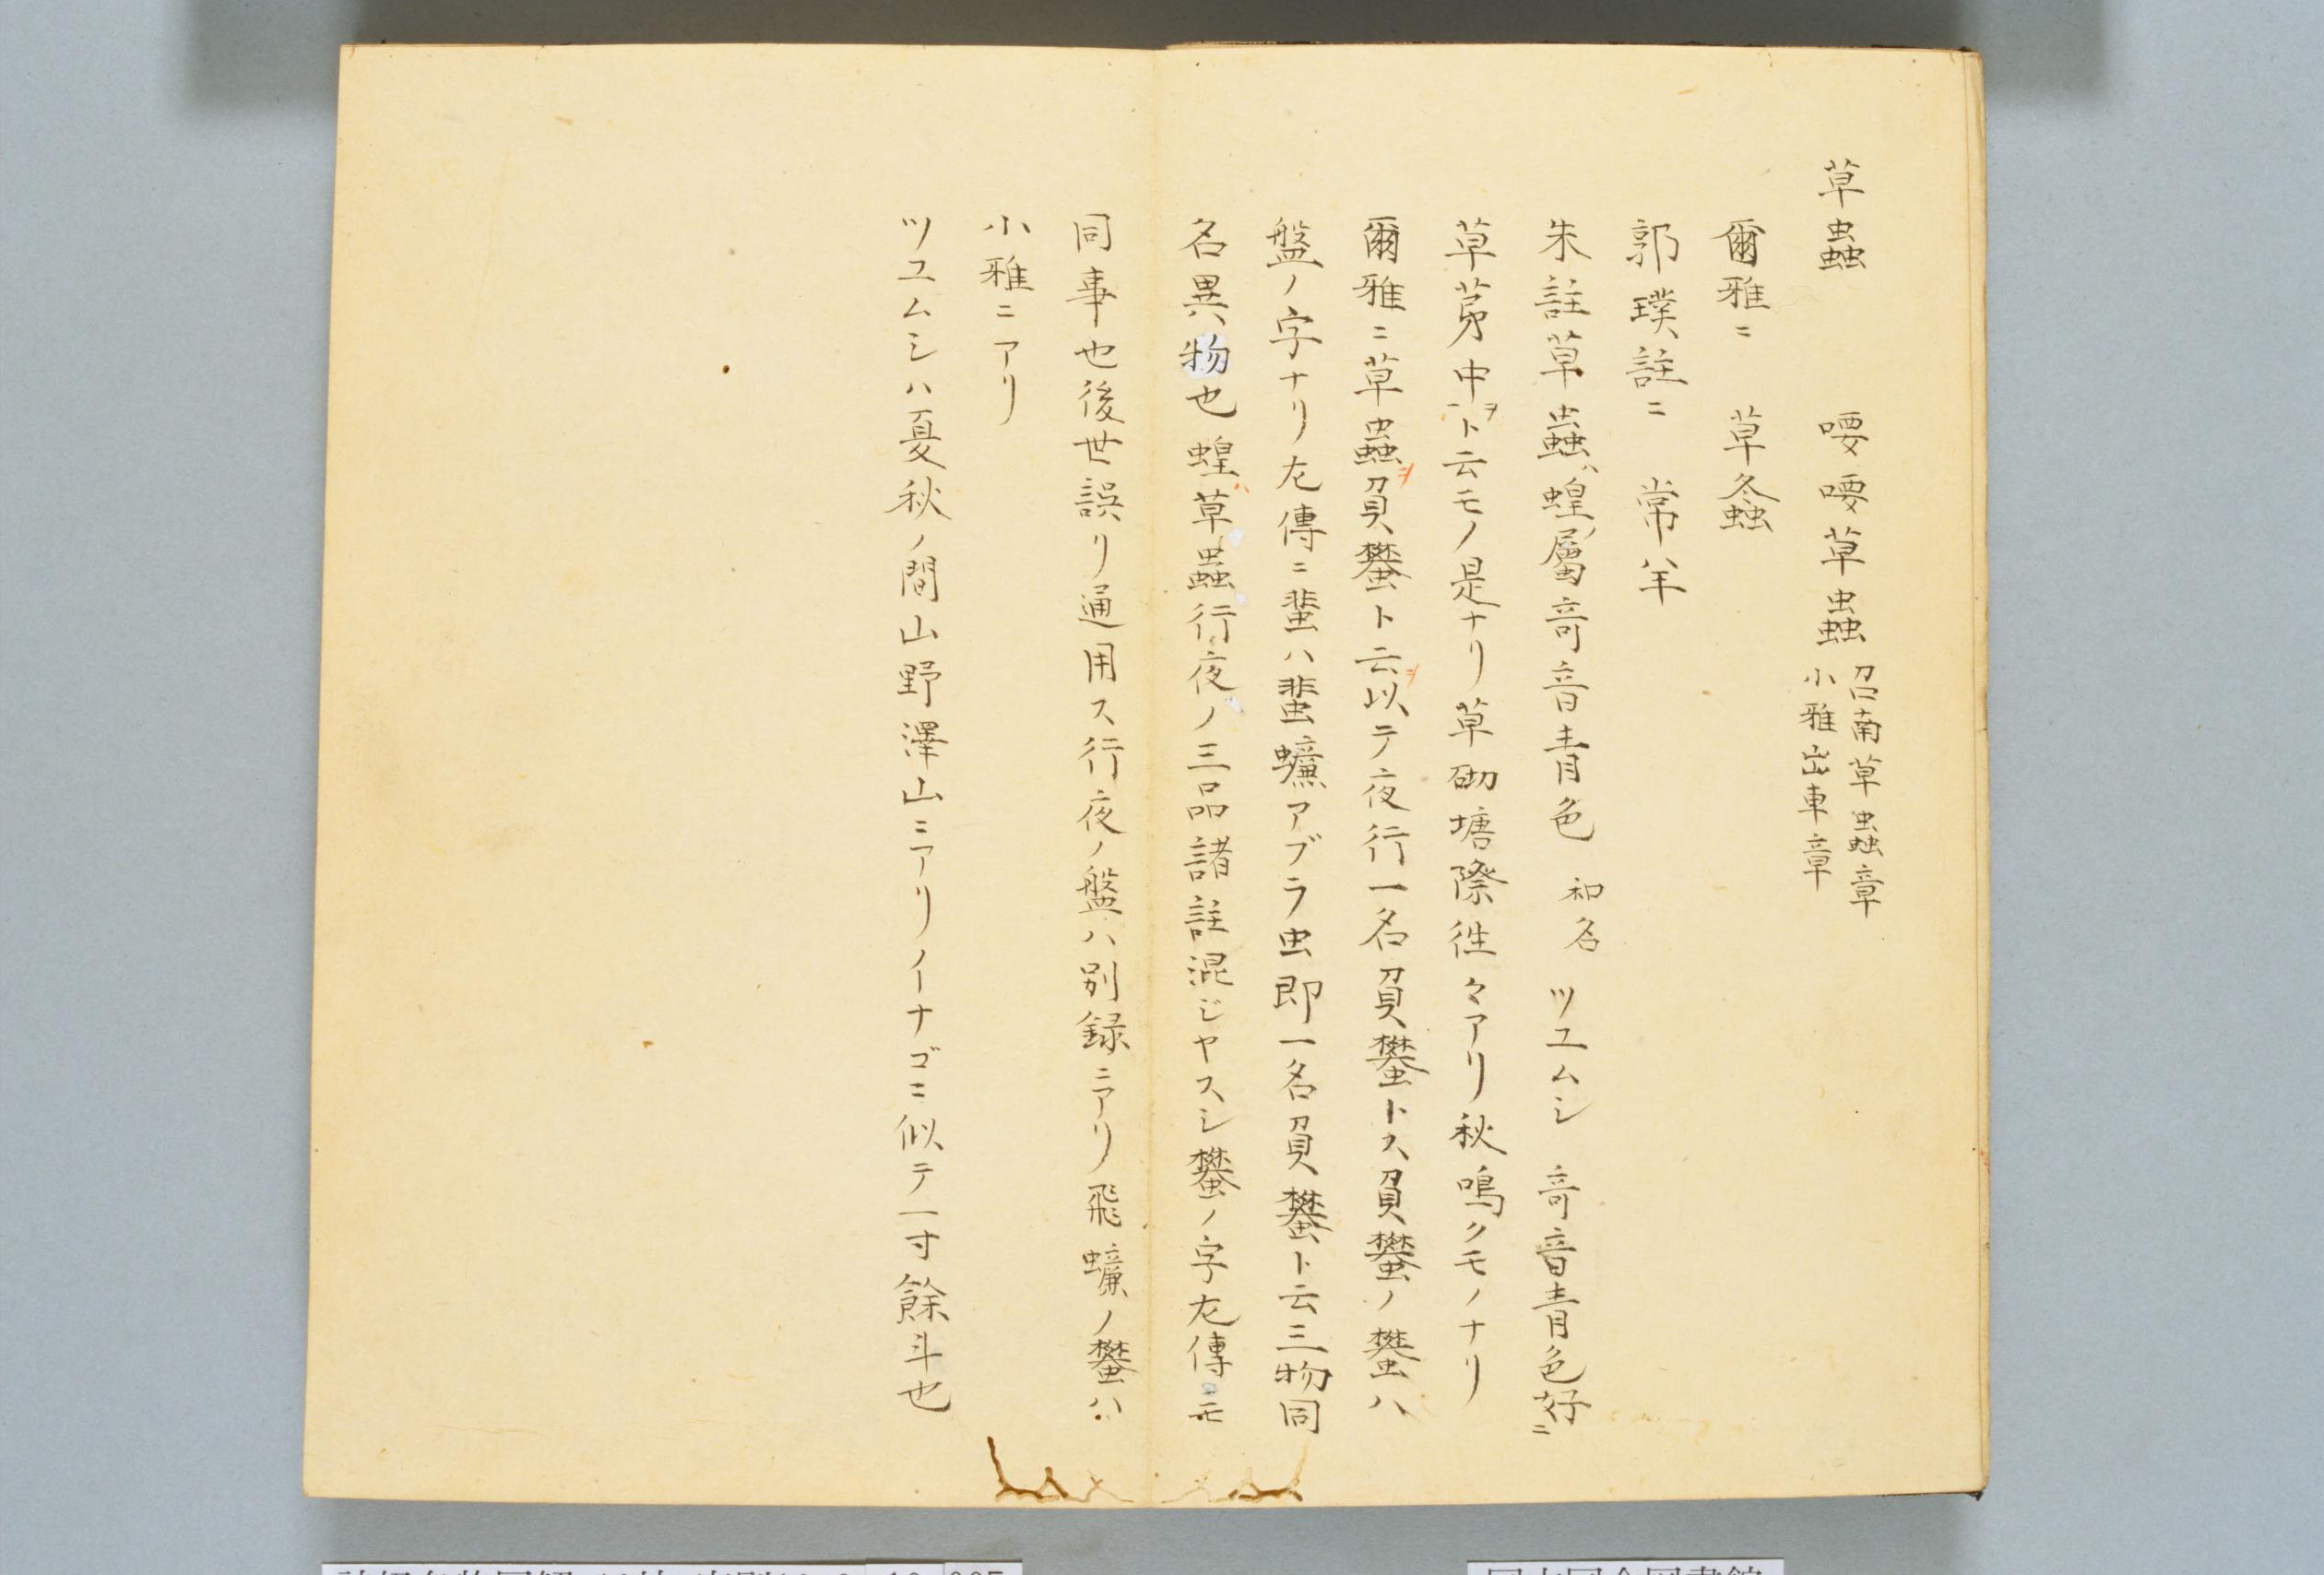 草蟲　喓喓草蟲 召南草蟲章
小雅出車章
爾雅ニ　草螽
郭璞註ニ　常羊
朱註草蟲ハ蝗ノ屬奇音青色 和名 ツユムシ 奇音青色好ニ
草茅中ヲト云モノ是ナリ草砌塘際徃々アリ秋鳴クモノナリ
爾雅ニ草蟲ヲ負蠜ト云以テ夜行一名負蠜トス負蠜ノ蠜ハ
盤ノ字ナリ左傳ニ蜚ハ蜚蠊アブラ虫即一名負蠜ト云三物同
名異物也蝗ハ草蟲行夜ノ三品諸註混ジヤスシ蠜ノ字左傳ニモ
同事也後世誤リ通用ス行夜ノ盤ハ別録ニアリ飛蠊ノ蠜ハ
小雅ニアリ
ツユムシハ夏秋ノ間山野澤山ニアリイナゴニ似テ一寸餘斗也